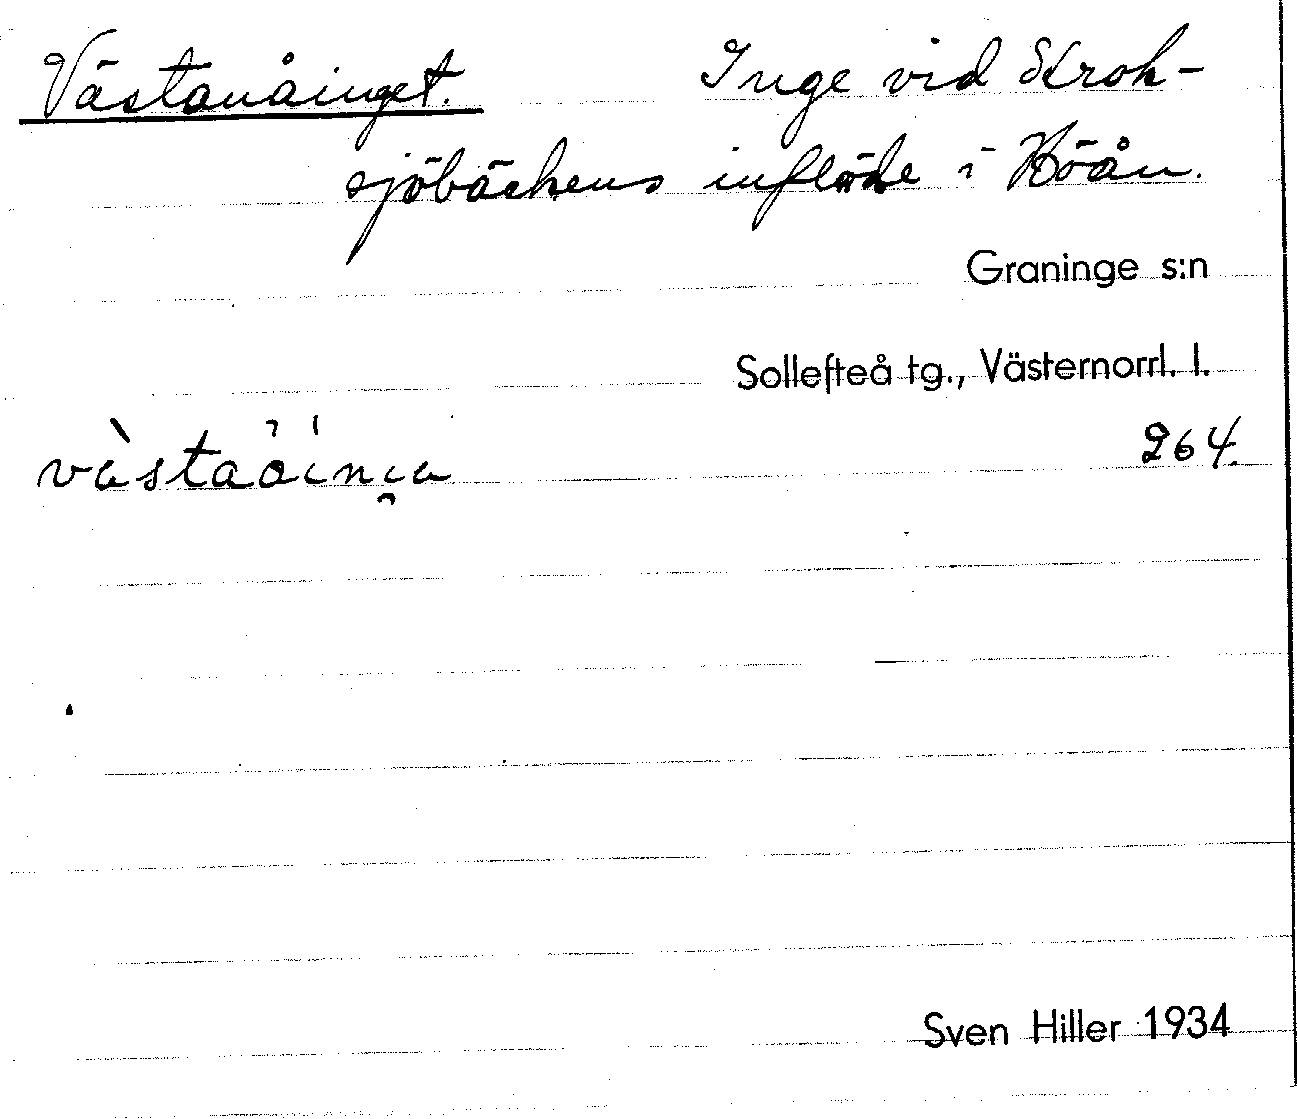 Västanåinget. Inge vid Krok-
sjöbäckens inflöde i Höån.
Graninge s:n
Sollefteå tg., Västernorrl. l.
264.
Sven Hiller 1934